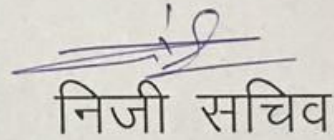 निजी सचिव